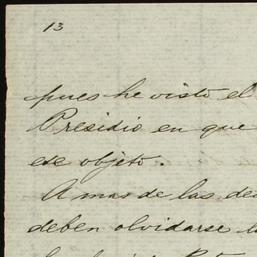 13
pues he visto el
Presidio en que
ese objeto.
A mas de las de
deben olvidarse